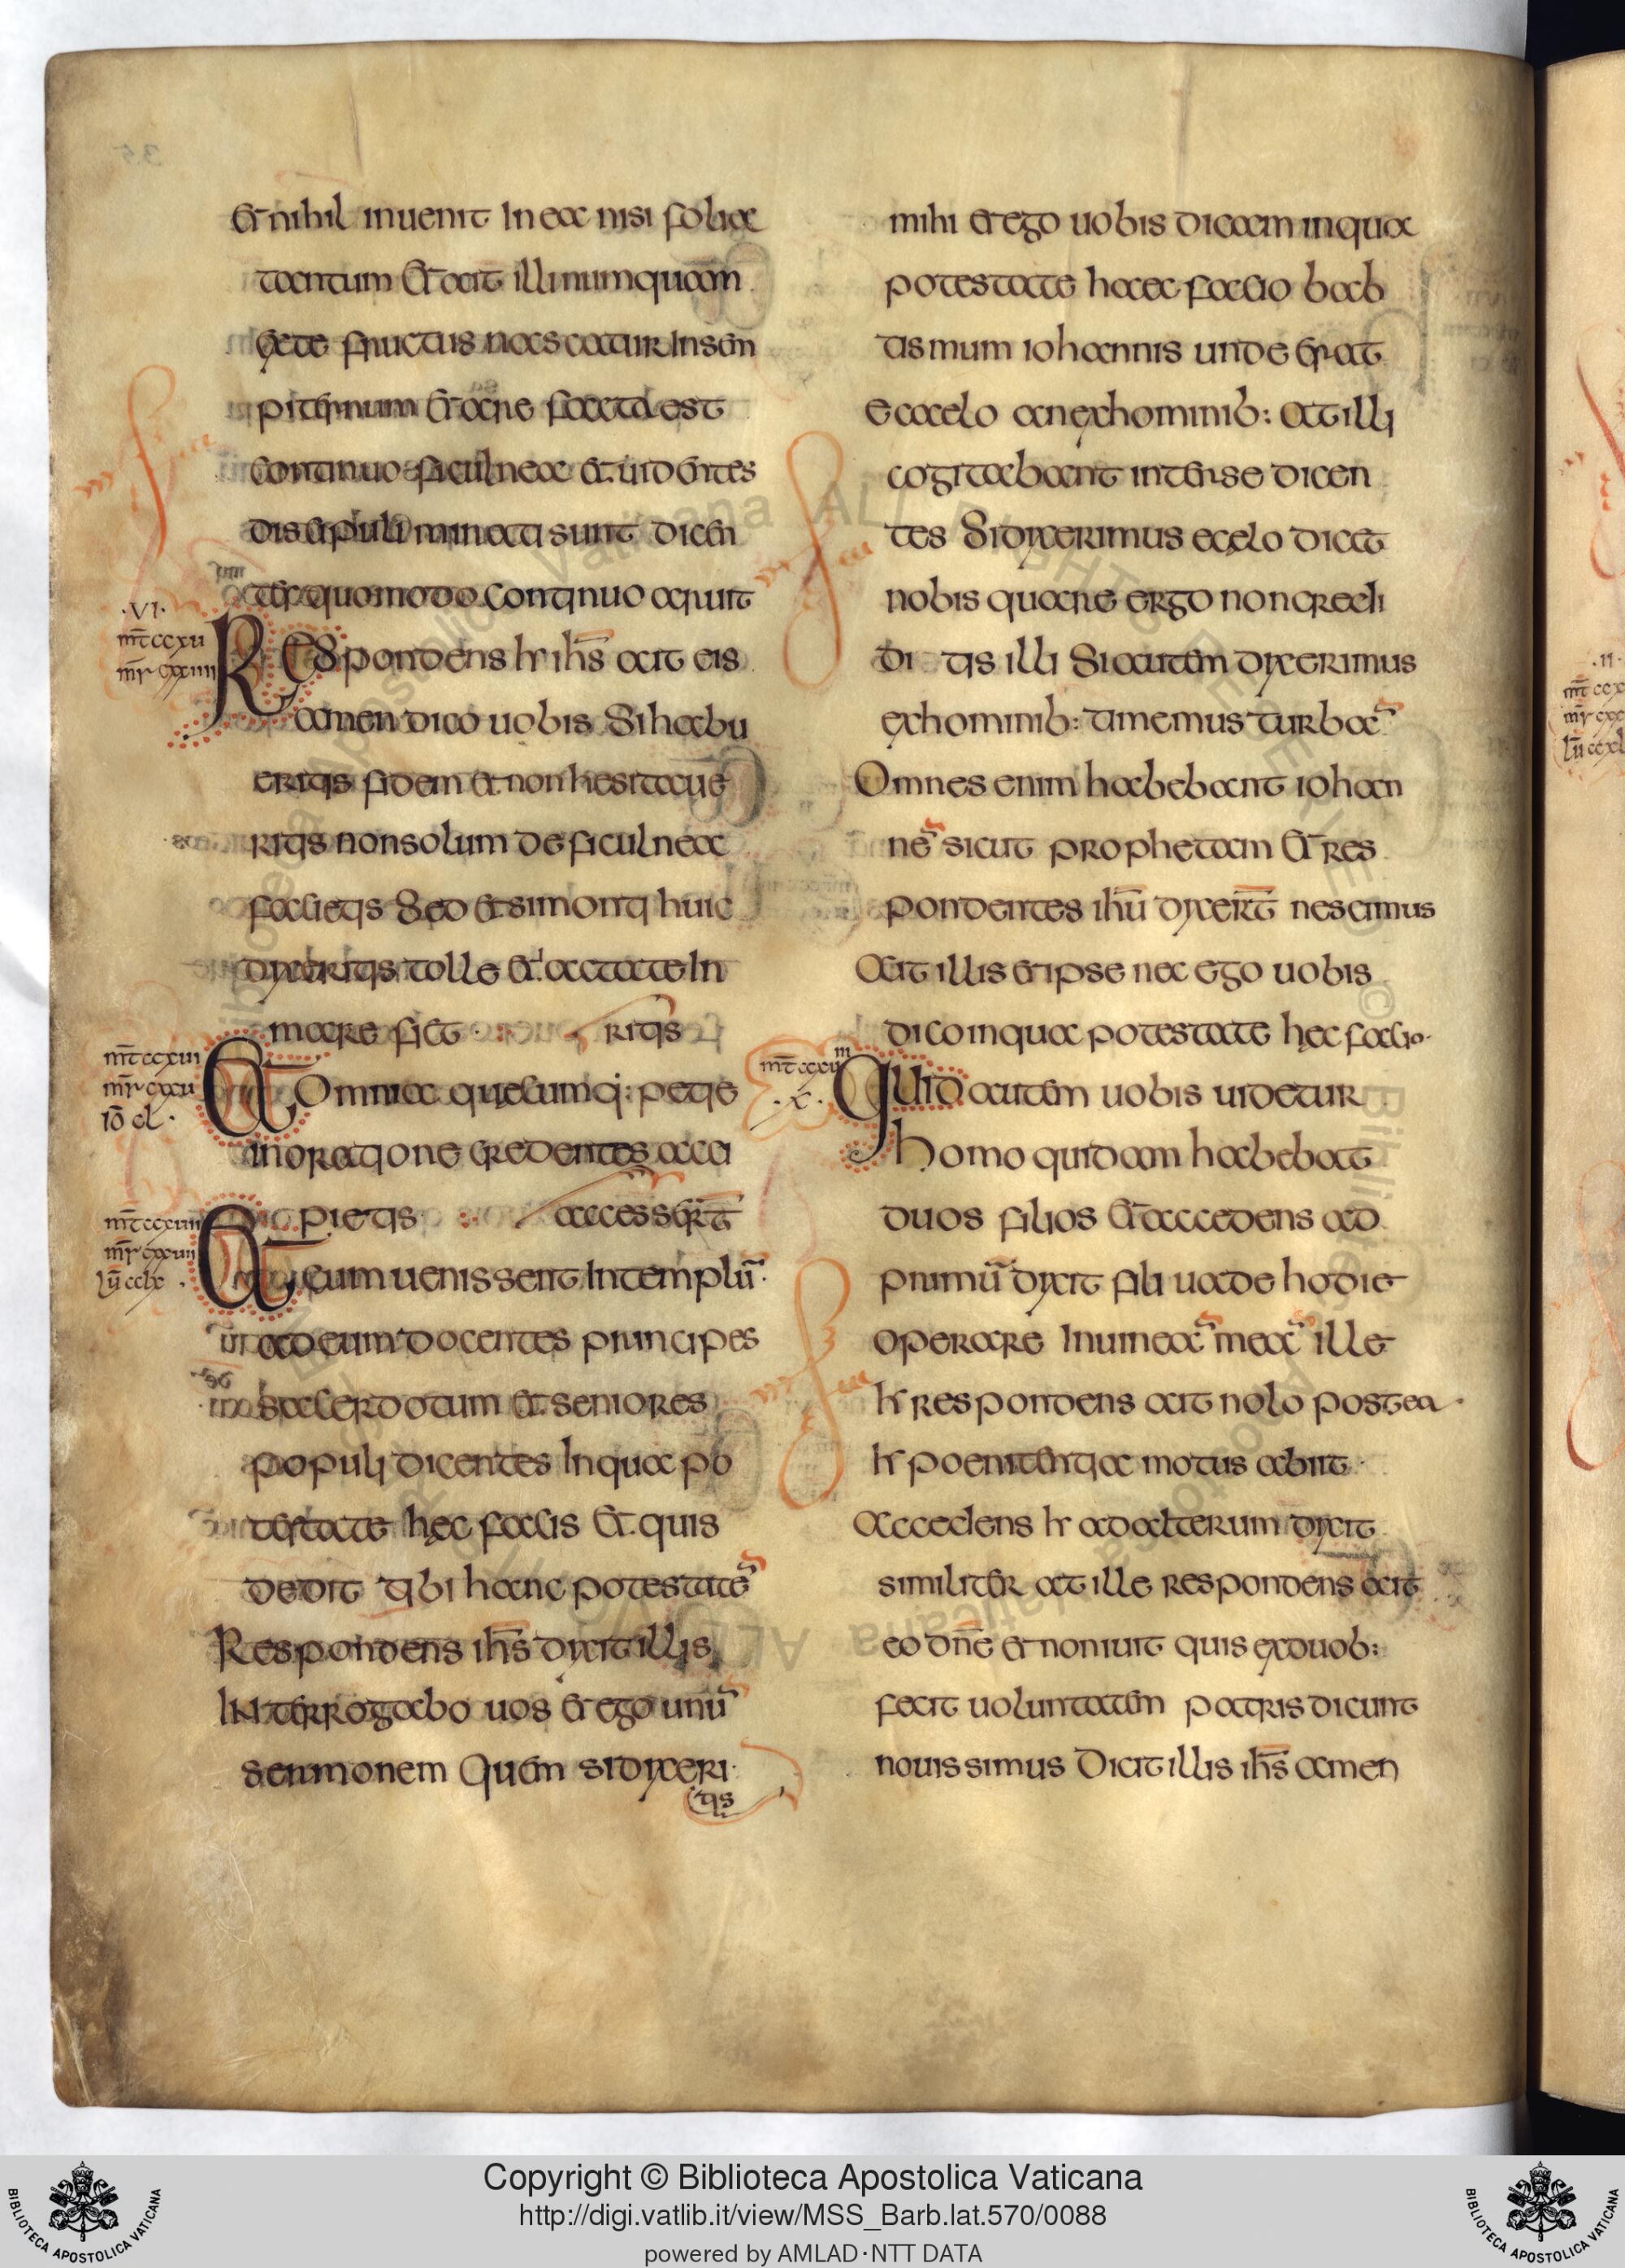 Et nihil inuenit In ea nisi folia
tantum Et ait illi numquam
ex te fructus nascatur In sem
piternum Et arae facta est
continuo ficulnea et uidentes
discipuli mirati sunt dicen
tes quomodo continuo aruit
·VI·
mt ccxu
mr cxxiiii
REspondens hr ihs ait eis
amen dico uobis Si habu
eritis fidem et non hesitaue
ritis non solum de ficulnea
facietis Sed et si monti huic
dixeritis tolle Et iactate In
mare fiet ritis
mt ccxui
mr cxxu
io cl·
ET Omnia quecumq: petie
in oratione credentes acci
pietis accesserunt
mt ccxuii
mr cxxuii
lu ccxl
ET cum uenissent In templu
ad eum docentes principes
sacerdotum et seniores
populi dicentes In qua po
testate hec facis Et quis
dedit tibi hanc potestate
Respondens ihs dixit illis
INterrogabo uos et ego unu
sermonem Quem si dixeri
tis
mihi et ego uobis dicam in qua
potestate haec facio bab
tismum iohannis unde erat
e caelo an ex hominib: At illi
cogitabant inter se dicen
tes Si dixerimus e celo dicet
nobis quare ergo non credi
di tis illi Si autem dixerimus
ex hominib: timemus turba
Omnes enim habebant iohan
ne sicut prophetam Et res
pondentes ihu dixert nescimus
Ait illis et ipse nec ego uobis
dico in qua potestate hec facio·
mt ccxuiii
·x·
QUID autem uobis uidetur
homo quidam habebat
duos filios Et accedens ad
primu dixit fili uade hodie
operare In uinea mea ille
hr respondens ait nolo postea·
hr poenitentia motus abiit·
Accedens hr ad alterum dixit
similiter at ille respondens ait
eo dne et non iuit quis ex duob:
fecit uoluntatem patris dicunt
nouissimus Dicit illis ihs amen
Copyright © Biblioteca Apostolica Vaticana
http://digi.vatlib.it/view/MSS_Barb.lat.570/0088
powered by AMLAD·NTT DATA
BIBLIOTECA APOSTOLICA VATICANA
BIBLIOTECA APOSTOLICA VATICANA